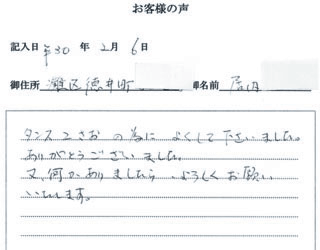 お客様の声
記入日 平30 年 2月 6日
御住所 灘区徳井町 御名前
タンス2さおの為によくして下さいました。
ありがとうございました。
又、何かありましたら、よろしくお願い
いたします。